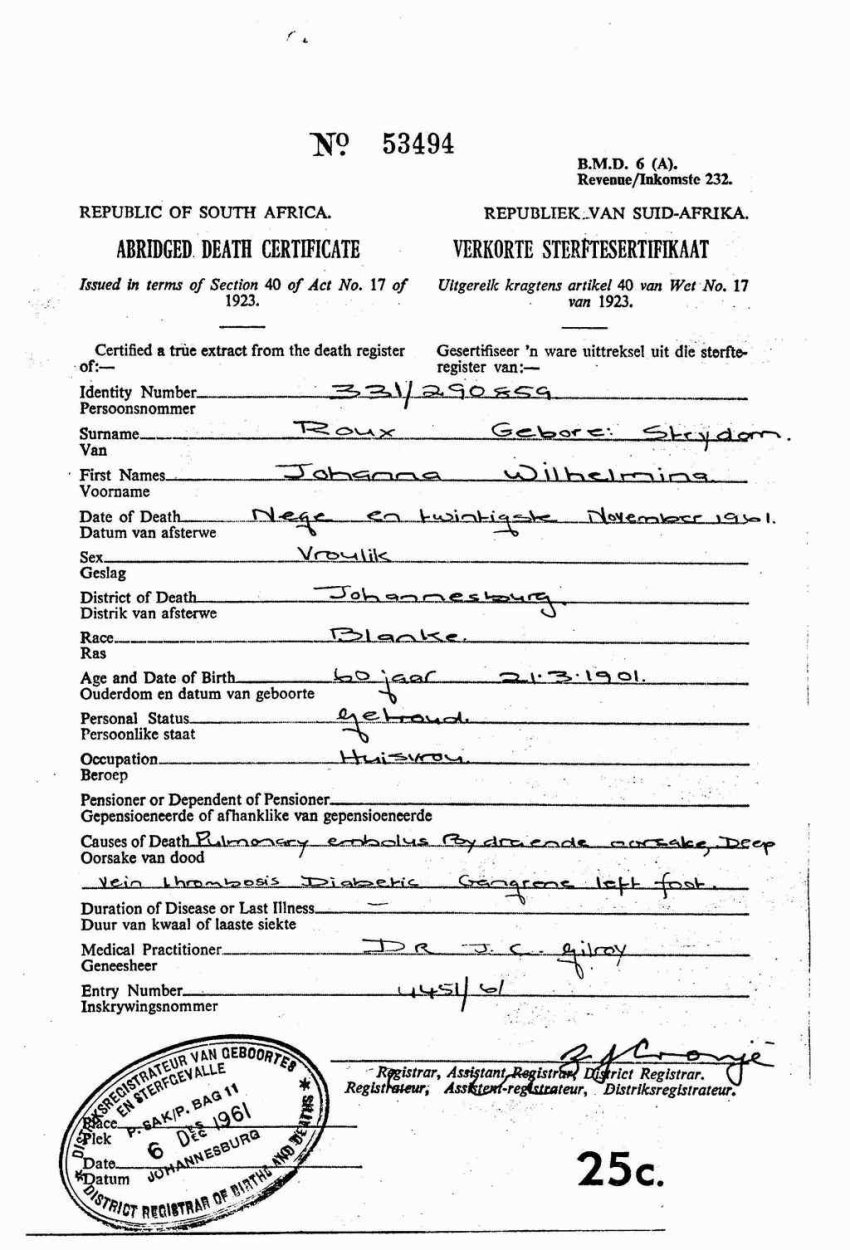 Nº 53494
B.M.D. 6 (A).
Revenue/Inkomste 232.
REPUBLIC OF SOUTH AFRICA.
REPUBLIEK VAN SUID-AFRIKA.
ABRIDGED DEATH CERTIFICATE
VERKORTE STERFTESERTIFIKAAT
Issued in terms of Section 40 of Act No. 17 of
1923.
Uitgereik kragtens artikel 40 van Wet No. 17
van 1923.
Certified a true extract from the death register
of:—
Gesertifiseer 'n ware uittreksel uit die sterfte-
register van:—
Identity Number 331/290859
Persoonsnommer
Surname Roux Gebore: Strydom.
Van
First Names Johanna Wilhelmina
Voorname
Date of Death Nege en twintigste November 1961.
Datum van afsterwe
Sex Vroulik
Geslag
District of Death Johannesburg.
Distrik van afsterwe
Race Blanke.
Ras
Age and Date of Birth 60 jaar 21.3.1901.
Ouderdom en datum van geboorte
Personal Status getroud.
Persoonlike staat
Occupation Huisvrou.
Beroep
Pensioner or Dependent of Pensioner
Gepensioeneerde of afhanklike van gepensioeneerde
Causes of Death Pulmonary embolus Bydraende oorsake, Deep
Oorsake van dood
Vein thrombosis Diabetic Gangrene left foot.
Duration of Disease or Last Illness —
Duur van kwaal of laaste siekte
Medical Practitioner DR J. C. Gilroy
Geneesheer
Entry Number 4451/61
Inskrywingsnommer
Cronjé
Registrar, Assistant Registrar, District Registrar.
Registrateur, Assistent-registrateur, Distriksregistrateur.
DISTRIKSREGISTRATEUR VAN GEBOORTES
EN STERFGEVALLE
P. SAK/P. BAG 11
Place
Plek
6 DES DEC 1961
JOHANNESBURG
Date
Datum
DISTRICT REGISTRAR OF BIRTHS AND DEATHS
25c.